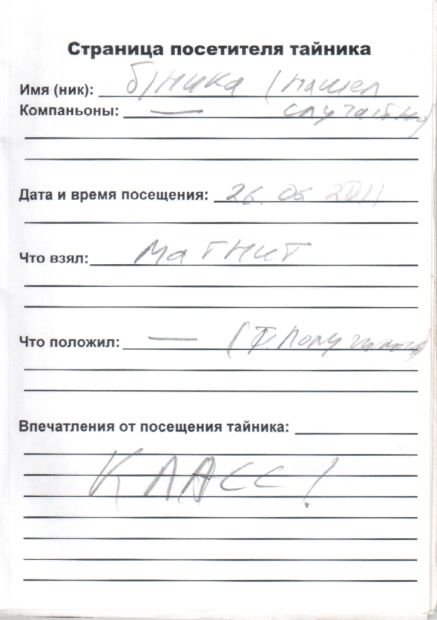 Страница посетителя тайника
Имя (ник): б/ника (нашел
Компаньоны: — случайно)
Дата и время посещения: 26.06 2011
Что взял: магнит
Что положил: —
Впечатления от посещения тайника:
КЛАСС!